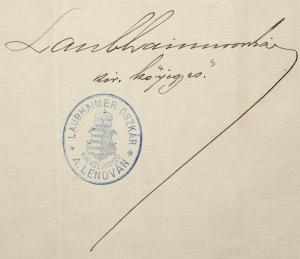 Laubhaimer Oszkár
kir. közjegyző.
LAUBHAIMER OSZKÁR
KIR. KÖZJEGYZŐ
* A. LENDVÁN *